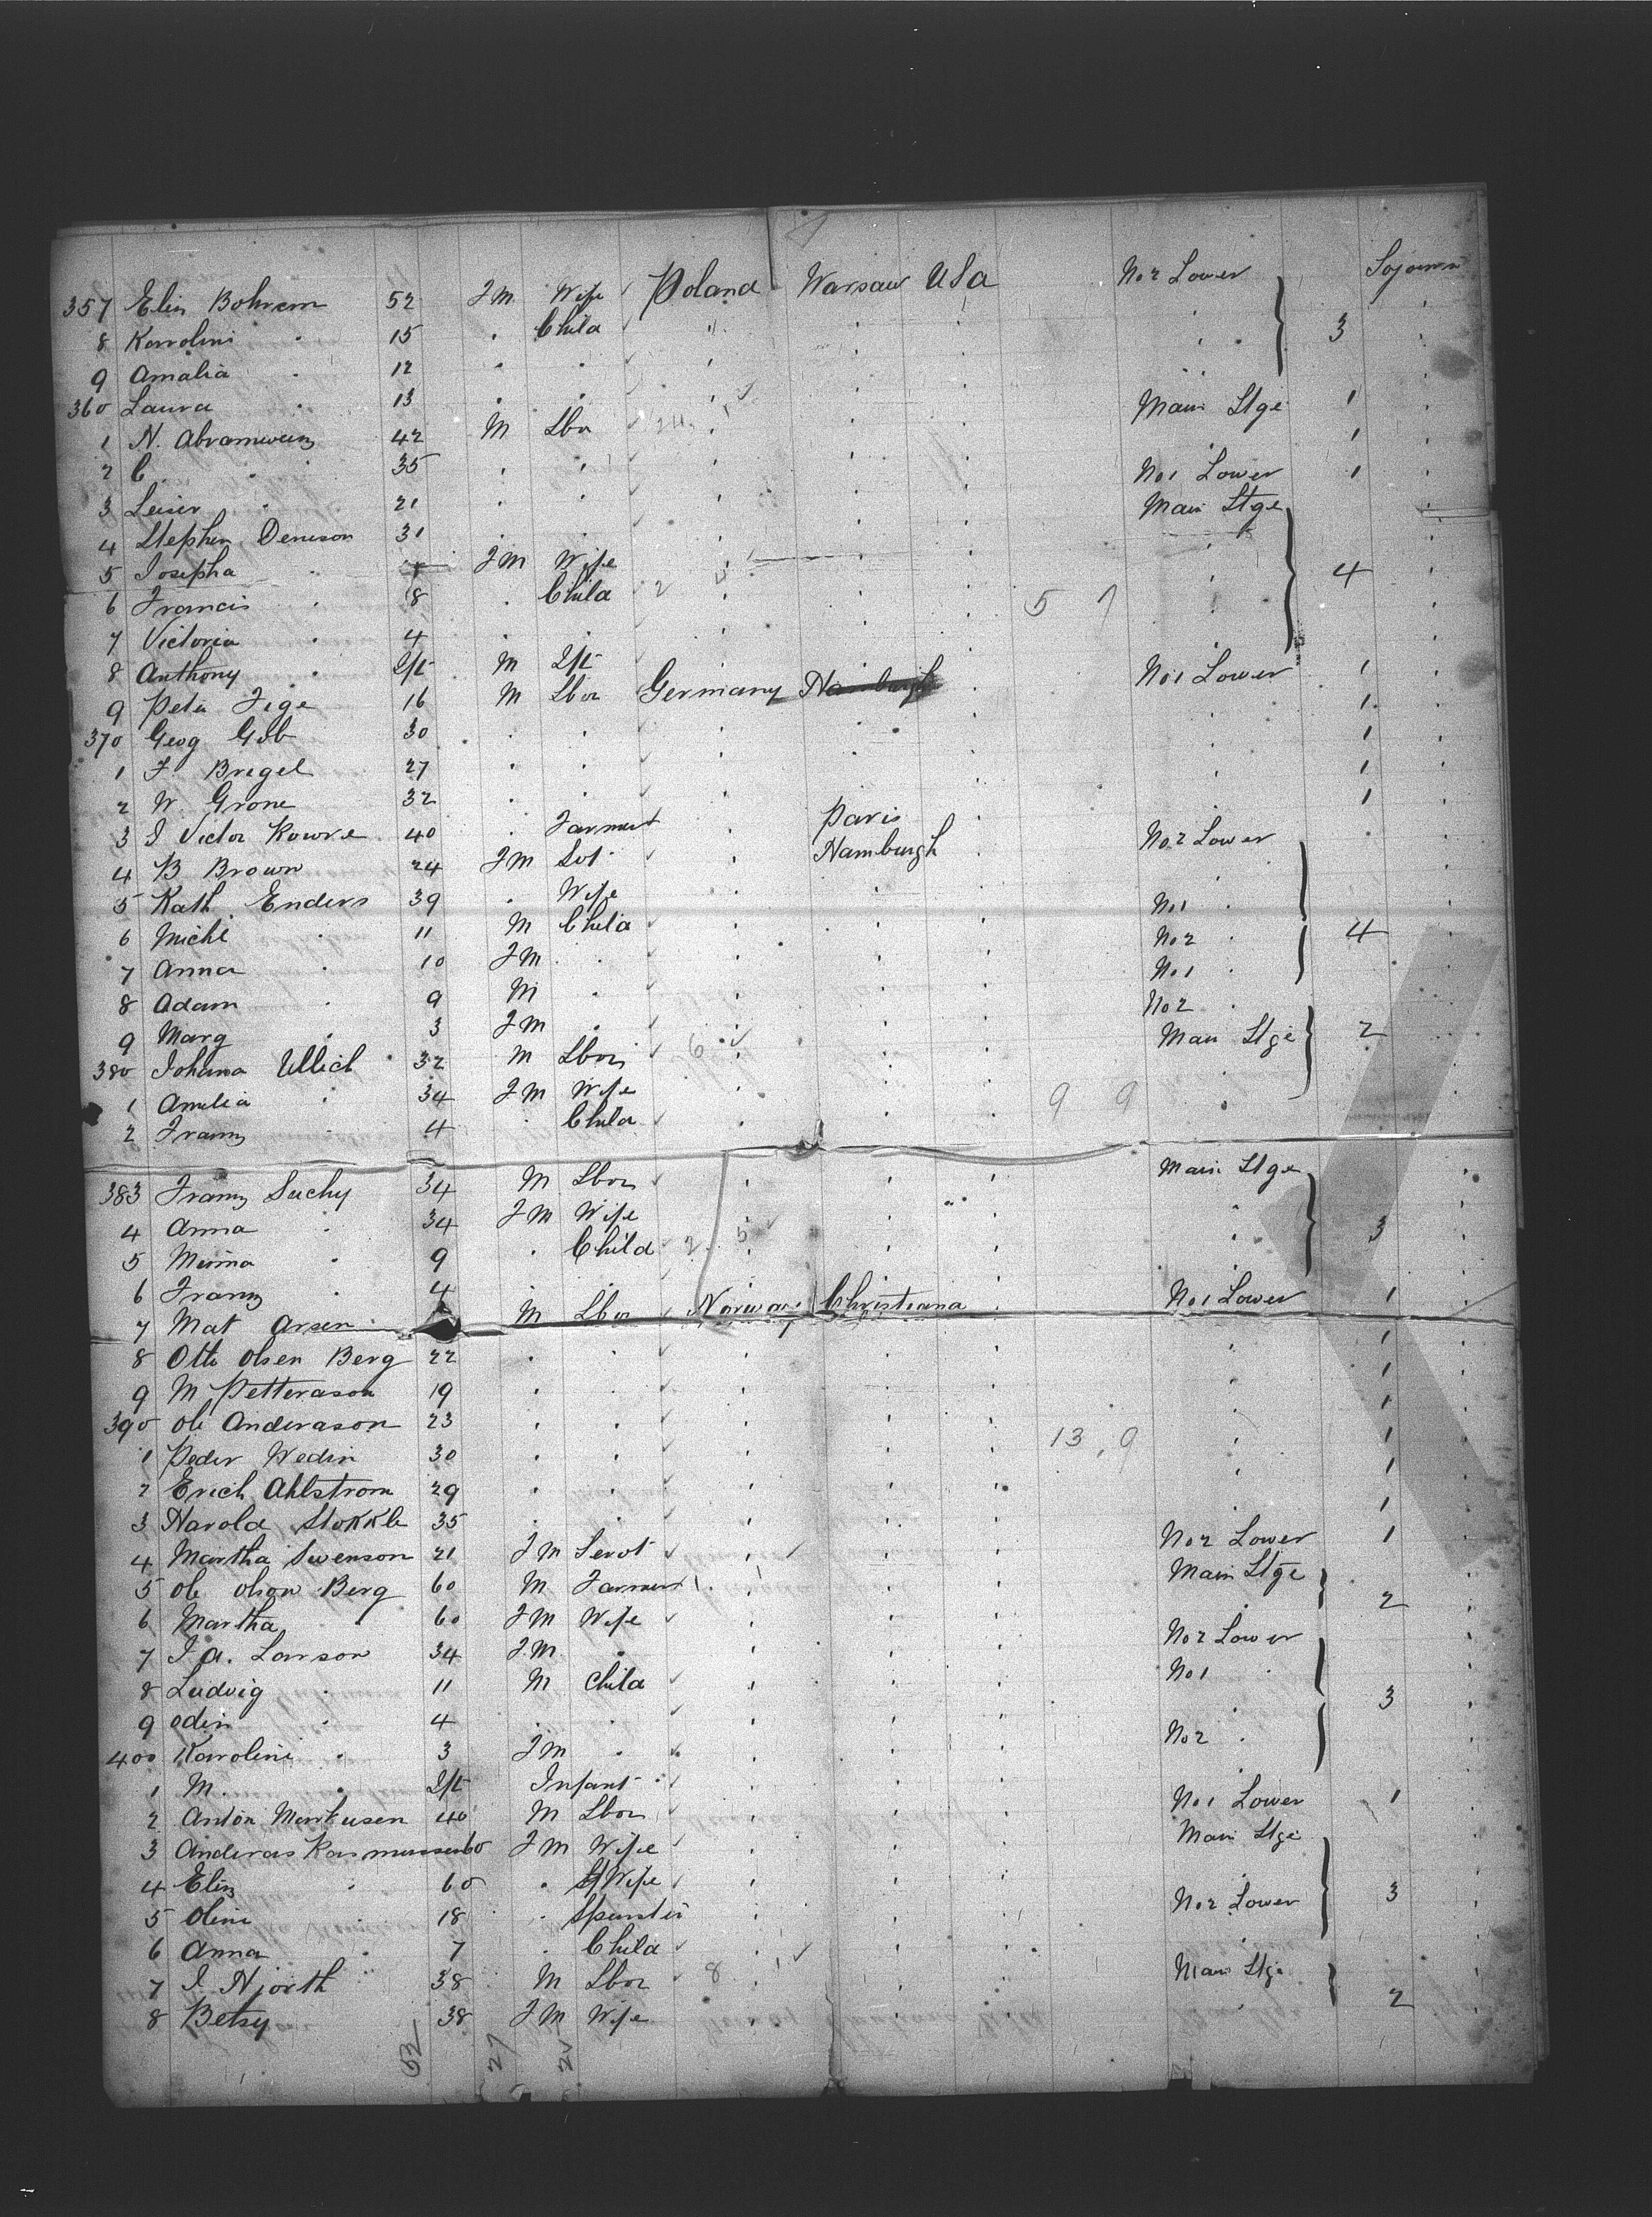 357 Eliz Bohrem 52 FM Wife Poland Warsaw USa No 2 Lower Sojourn
8 Karolini " 15 " Child " " " " 3 "
9 Amalia " 12 " " " " " " "
360 Laura " 13 " " " " "
1 N. Abramweiz 42 M Lbr 24 " " " Main Stge 1 "
2 C. " 35 " " " " " 1 "
3 Leiser " 21 " " " " " No 1 Lower 1 "
4 Stephen Deneson 31 " " " " " Main Stge "
5 Josepha " FM Wife " " " " "
6 Francis " 8 " Child 2 " " " 5 7 " 4 "
7 Victoria " 4 " " " " " "
8 Anthony " Inft M Inft " " "
9 Peter Fege 16 M Lbor Germany Hamburgh " No 1 Lower 1 "
370 Geog Gob 30 " " " " " " 1 "
1 F. Bregel 27 " " " " " " 1 "
2 W. Grone 32 " " " " " " 1 "
3 J Victor Kowre 40 " Farmer " Paris " 1 "
4 B Brown 24 FM Svt " Hamburgh " No 2 Lower "
5 Kath Enders 39 " Wife " " " " "
6 Michl " 11 M Child " " " No 1 " "
7 Anna " 10 FM " " " " No 2 " 4 "
8 Adam " 9 M " " " " No 1 " "
9 Marg " 3 FM " " " " No 2 " "
380 Johana Ullich 32 M Lbor 6 " " " Main Stge 2 "
1 Amelia " 34 FM Wife " " " " "
2 Franz " 4 " Child " " " 9 9 " "
383 Franz Suchy 34 M Lbor " " " Main Stge "
4 Anna " 34 FM Wife " " " " "
5 Minna " 9 " Child 2 5 " " " " 3 "
6 Franz " 4 " " " "
7 Mat Arsen M Lbor Norway Christiana " No 1 Lower 1 "
8 Otto Olsen Berg 22 " " " " " " 1 "
9 M Petterason 19 " " " " " " 1 "
390 Ole Anderason 23 " " " " " " 1 "
1 Peder Wedin 30 " " " " " 13 9 " 1 "
2 Erich Ahlstrom 29 " " " " " " 1 "
3 Harold Stokkle 35 " " " " " " 1 "
4 Martha Swenson 21 FM Servt " " " No 2 Lower 1 "
5 Ole Olson Berg 60 M Farmer 1 " " " Main Stge "
6 Martha " 60 FM Wife " " " " 2 "
7 J. A. Larson 34 FM " " " " No 2 Lower "
8 Ludvig " 11 M Child " " " No 1 " "
9 Odin " 4 " " " " " " 3 "
400 Karolini " 3 FM " " " " No 2 " "
1 M. " Inft Infant " " "
2 Anton Markusen 40 M Lbor " " " No 1 Lower 1 "
3 Anderas Rasmussen 60 FM Wife " " " Main Stge "
4 Eliz " 60 " Wife " " " " 3 "
5 Oline " 18 " Spinster " " " No 2 Lower "
6 Anna " 7 " Child " " " " "
7 J. Hjorth 38 M Lbor 8 " " " Main Stge "
8 Betsy 38 FM Wife " " " " 2 "
52 27 25